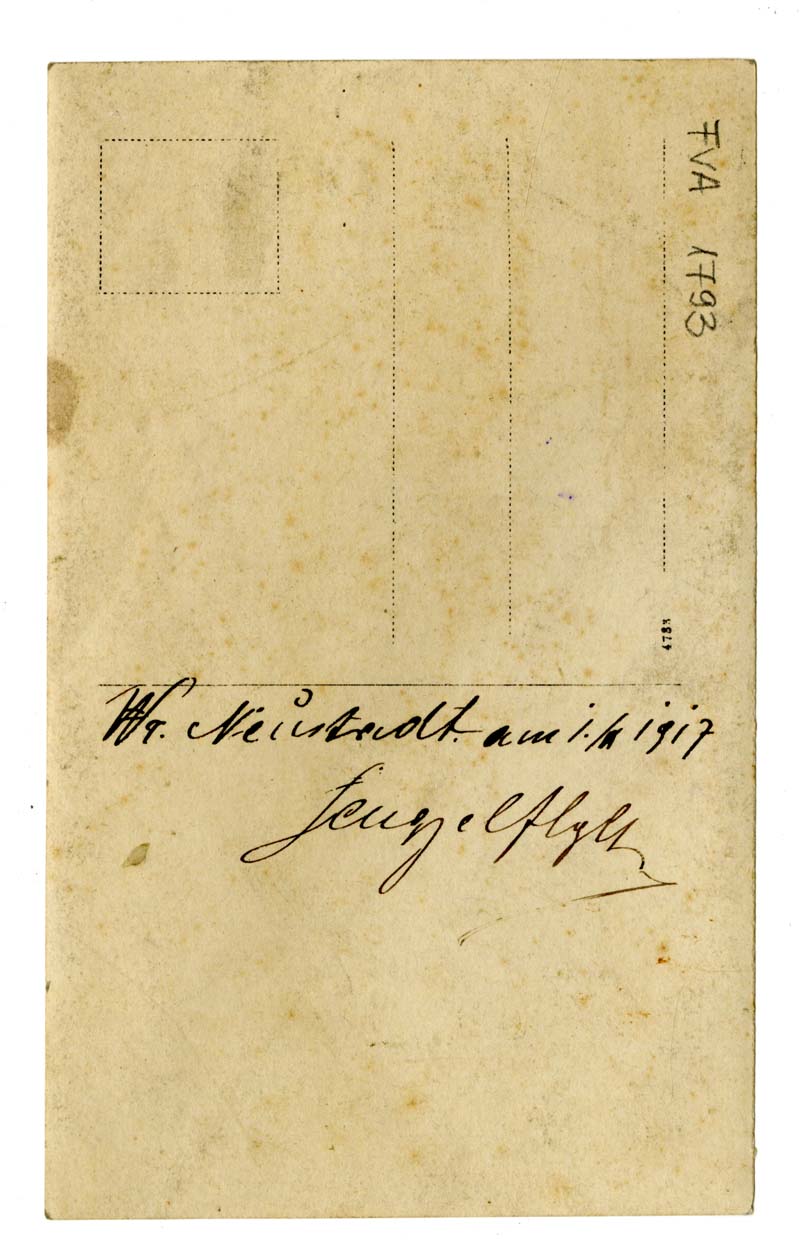 FVA 1793
4783
Wr. Neustadt. am 1./II 1917